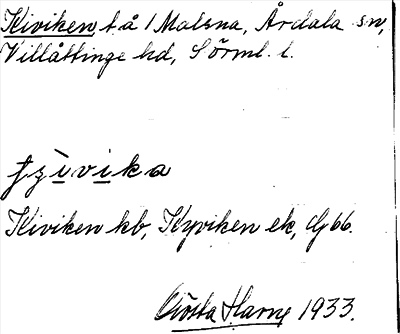 Kiviken t.å 1 Malsna, Årdala sn,
Villåttinge hd, Sörml. l.
fzivika
Kiviken kb, Kyviken ek, Gj 66.
Gösta Harne 1933.